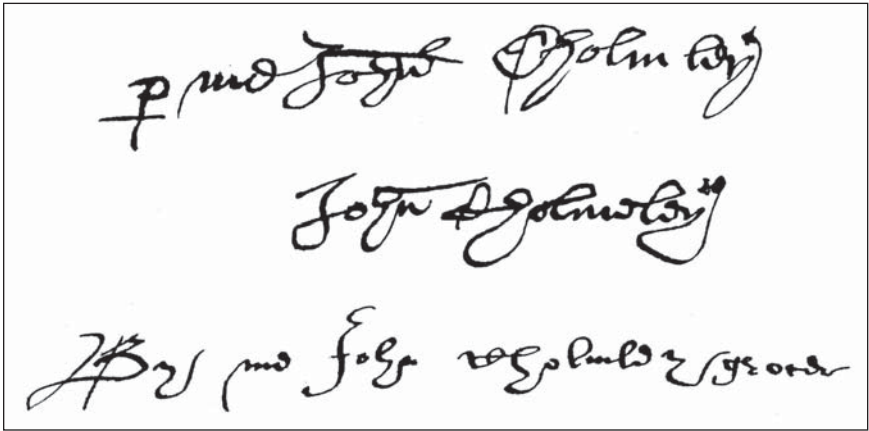 p me John Cholmley
John Cholmeley
By me John Cholmley grocer